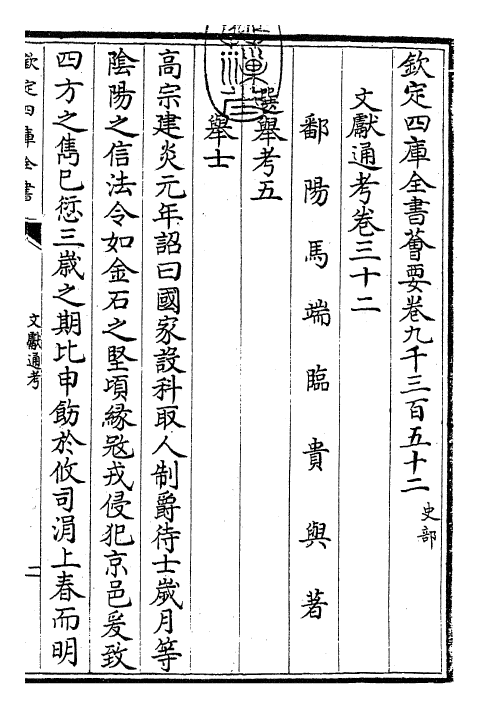 欽定四庫全書薈要卷九千三百五十二 史部
文獻通考卷三十二
鄱陽馬端臨貴與著
選舉考五
舉士
高宗建炎元年詔曰國家設科取人制爵待士歲月等
陰陽之信法令如金石之堅頃緣冦戎侵犯京邑爰致
四方之雋已愆三歲之期比申飭於攸司涓上春而明
欽定四庫全書
文獻通考